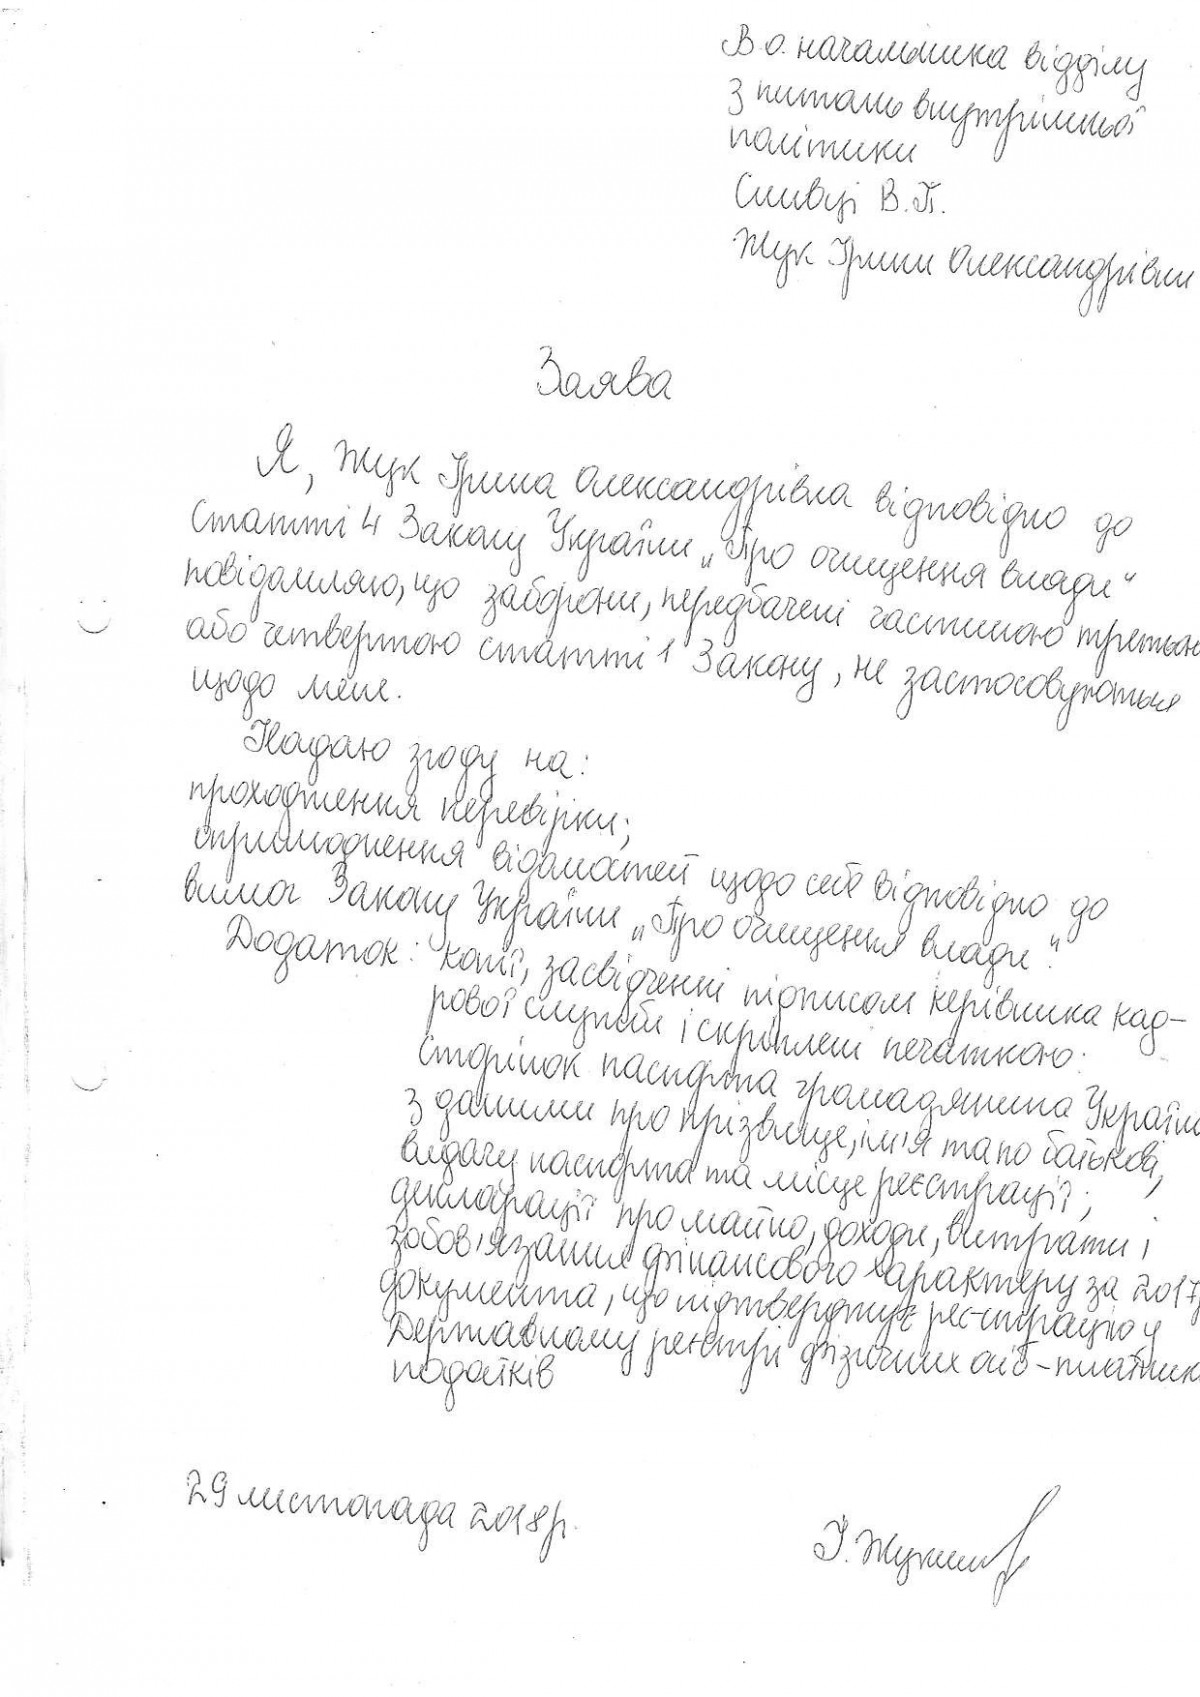 В о. начальника відділу
з питань внутрішньої
політики
Сливці В.П.
Жук Ірини Олександрівни
Заява
Я, Жук Ірина Олександрівна відповідно до
статті 4 Закону України „Про очищення влади“
повідомляю, що заборони, передбачені частиною третьою
або четвертою статті 1 Закону, не застосовуються
щодо мене.
Надаю згоду на:
проходження перевірки;
оприлюднення відомостей щодо себе відповідно до
вимог Закону України „Про очищення влади“.
Додаток: копії, засвідченні підписом керівника кад-
рової служби і скріплені печаткою:
сторінок паспорта громадянина України
з даними про прізвище, ім'я та по батькові,
видачу паспорта та місце реєстрації;
декларації про майно, доходи, витрати і
зобов'язання фінансового характеру за 2017,
документа, що підтверджує реєстрацію у
Державному реєстрі фізичних осіб-платник
податків
29 листопада 2018р.
І. Жук